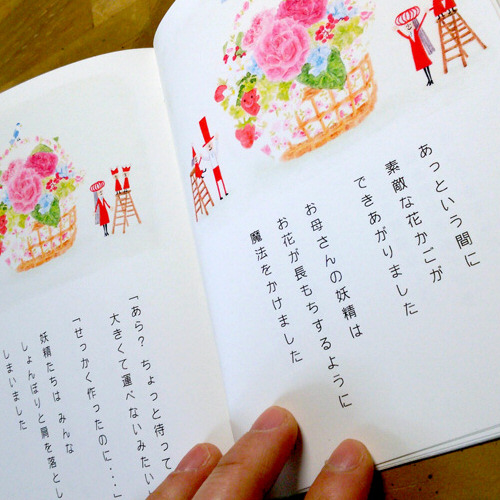 あっという間に
素敵な花かごが
できあがりました
お母さんの妖精は
お花が長もちするように
魔法をかけました
「あら？ ちょっと待って
大きくて運べないみたい
「せっかく作ったのに・・・」
妖精たちは みんな
しょんぼりと肩を落とし
しまいました